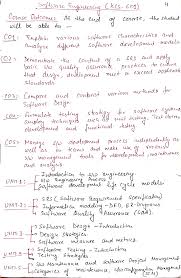 Software Engineering (KCS-601)
Course Outcomes: At the end of course, the student
will be able to -
CO1 Explain various software characteristics and
analyze different software development models
CO2 Demonstrate the contents of a SRS and apply
basic software quality assurance practices to ensure
that design, development meet or exceed applicable
standards
CO3 Compare and contrast various methods for
software design
CO4 Formulate testing strategy for software systems,
employ techniques such as unit testing, Test
driven development and functional testing
CO5 Manage software development process independently as
well as in teams and make use of various
software management tools for development, maintenance
and analysis
UNIT-1 Introduction to S/W Engineering
S/W Engineering Process
Software development life cycle models
UNIT-2 SRS (Software Requirement Specification)
Information modelling, DFD, E-R Diagrams
Software Quality Assurance (SQA)
UNIT-3 Software Design - Introduction
Design Strategies
Software Measure and metrics
UNIT-4 Software Testing - Introduction
Testing Strategies
UNIT-5 Software Maintenance and Software Project Management
Categories of maintenance,